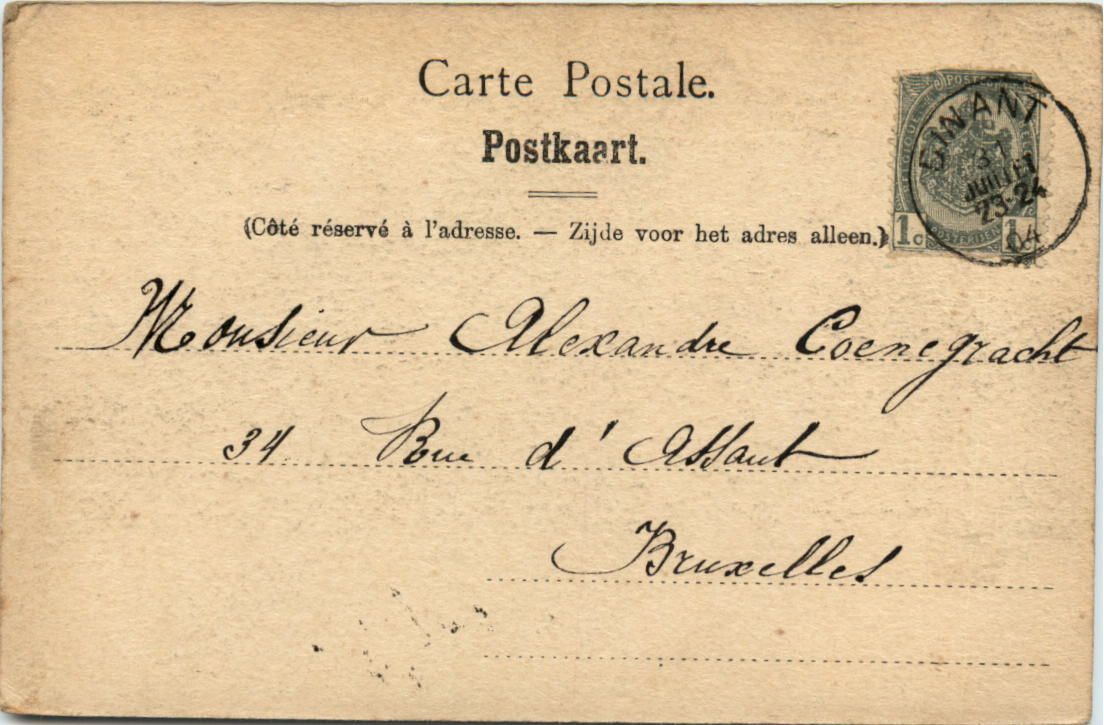 Carte Postale.
Postkaart.
(Côté réservé à l'adresse. — Zijde voor het adres alleen.)
DINANT
31
JUILLET
23-24
04
1c
Monsieur Alexandre Coenegracht
34 Rue d'Assaut
Bruxelles